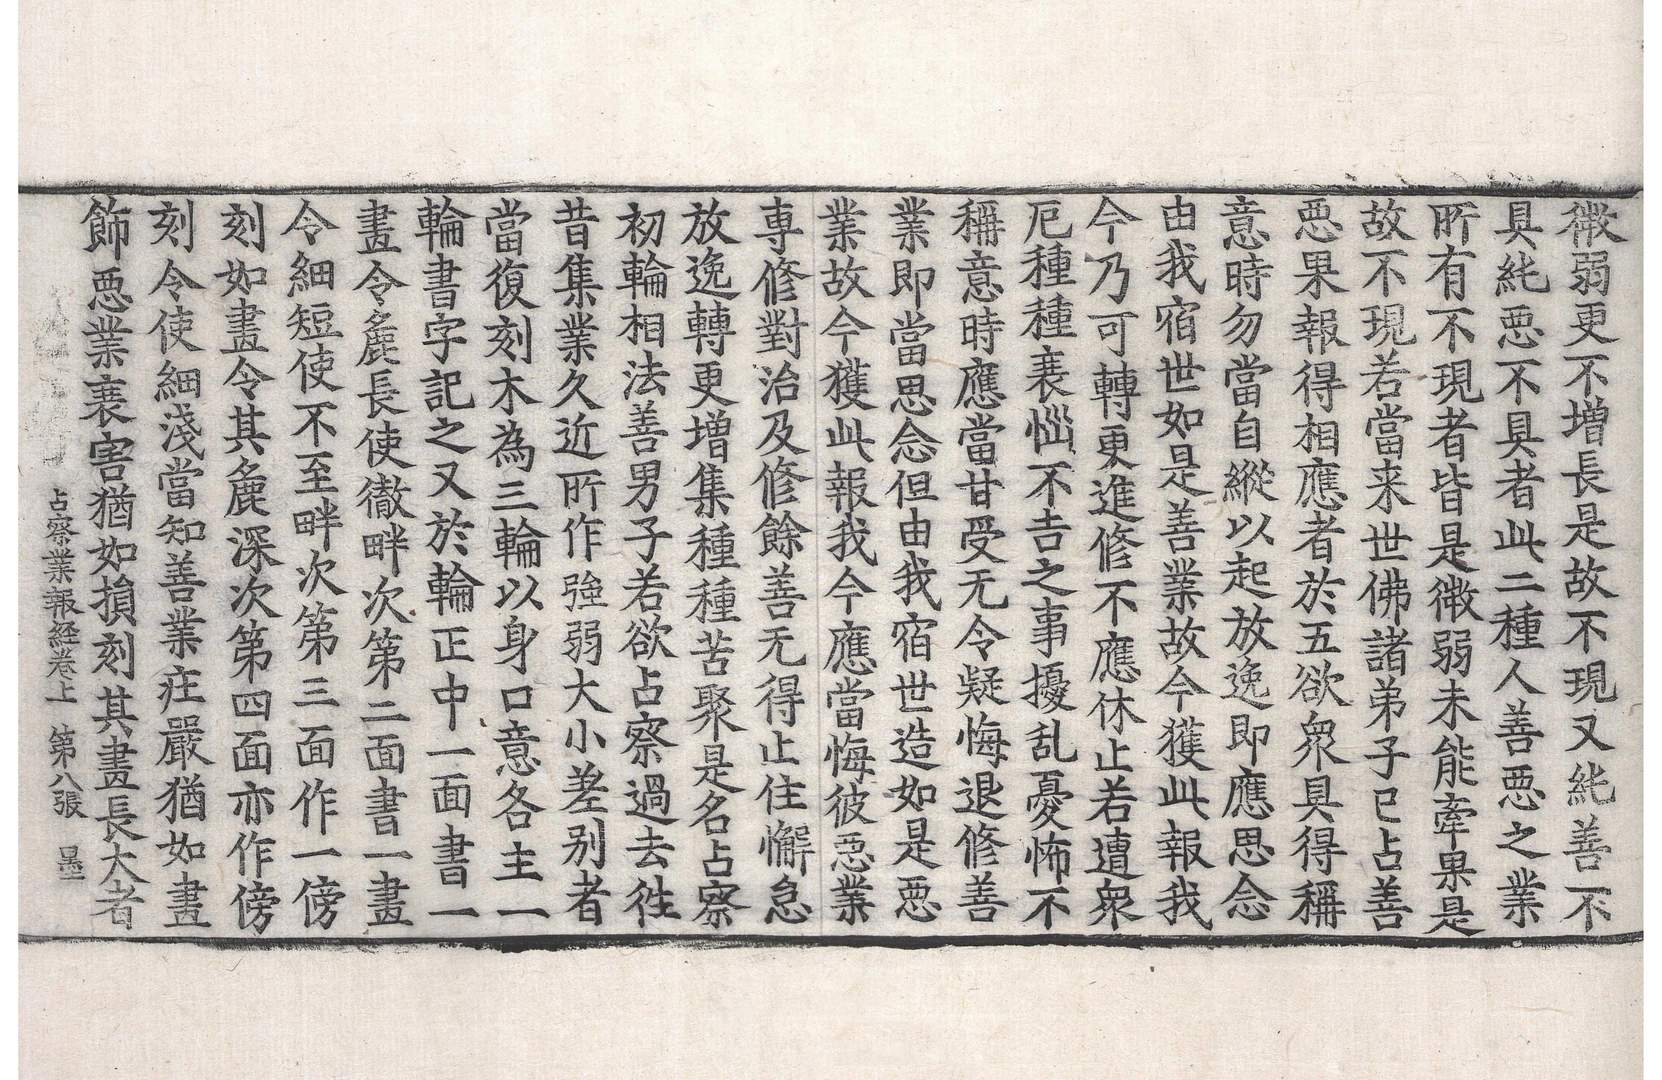 微弱更不增長是故不現又純善不
具純惡不具者此二種人善惡之業
所有不現者皆是微弱未能牽果是
故不現若當来世佛諸弟子已占善
惡果報得相應者於五欲衆具得稱
意時勿當自縱以起放逸即應思念
由我宿世如是善業故今獲此報我
今乃可轉更進修不應休止若遭衆
厄種種衰惱不吉之事擾乱憂怖不
稱意時應當甘受无令疑悔退修善
業即當思念但由我宿世造如是惡
業故今獲此報我今應當悔彼惡業
專修對治及修餘善无得止住懈怠
放逸轉更增集種種苦聚是名占察
初輪相法善男子若欲占察過去徃
昔集業久近所作強弱大小差别者
當復刻木為三輪以身口意各主一
輪書字記之又於輪正中一面書一
畫令麁長使徹畔次第二面書一畫
令細短使不至畔次第三面作一傍
刻如畫令其麁深次第四面亦作傍
刻令使細淺當知善業庄嚴猶如畫
飾惡業衰害猶如損刻其畫長大者
占察業報経卷上 第八張 墨